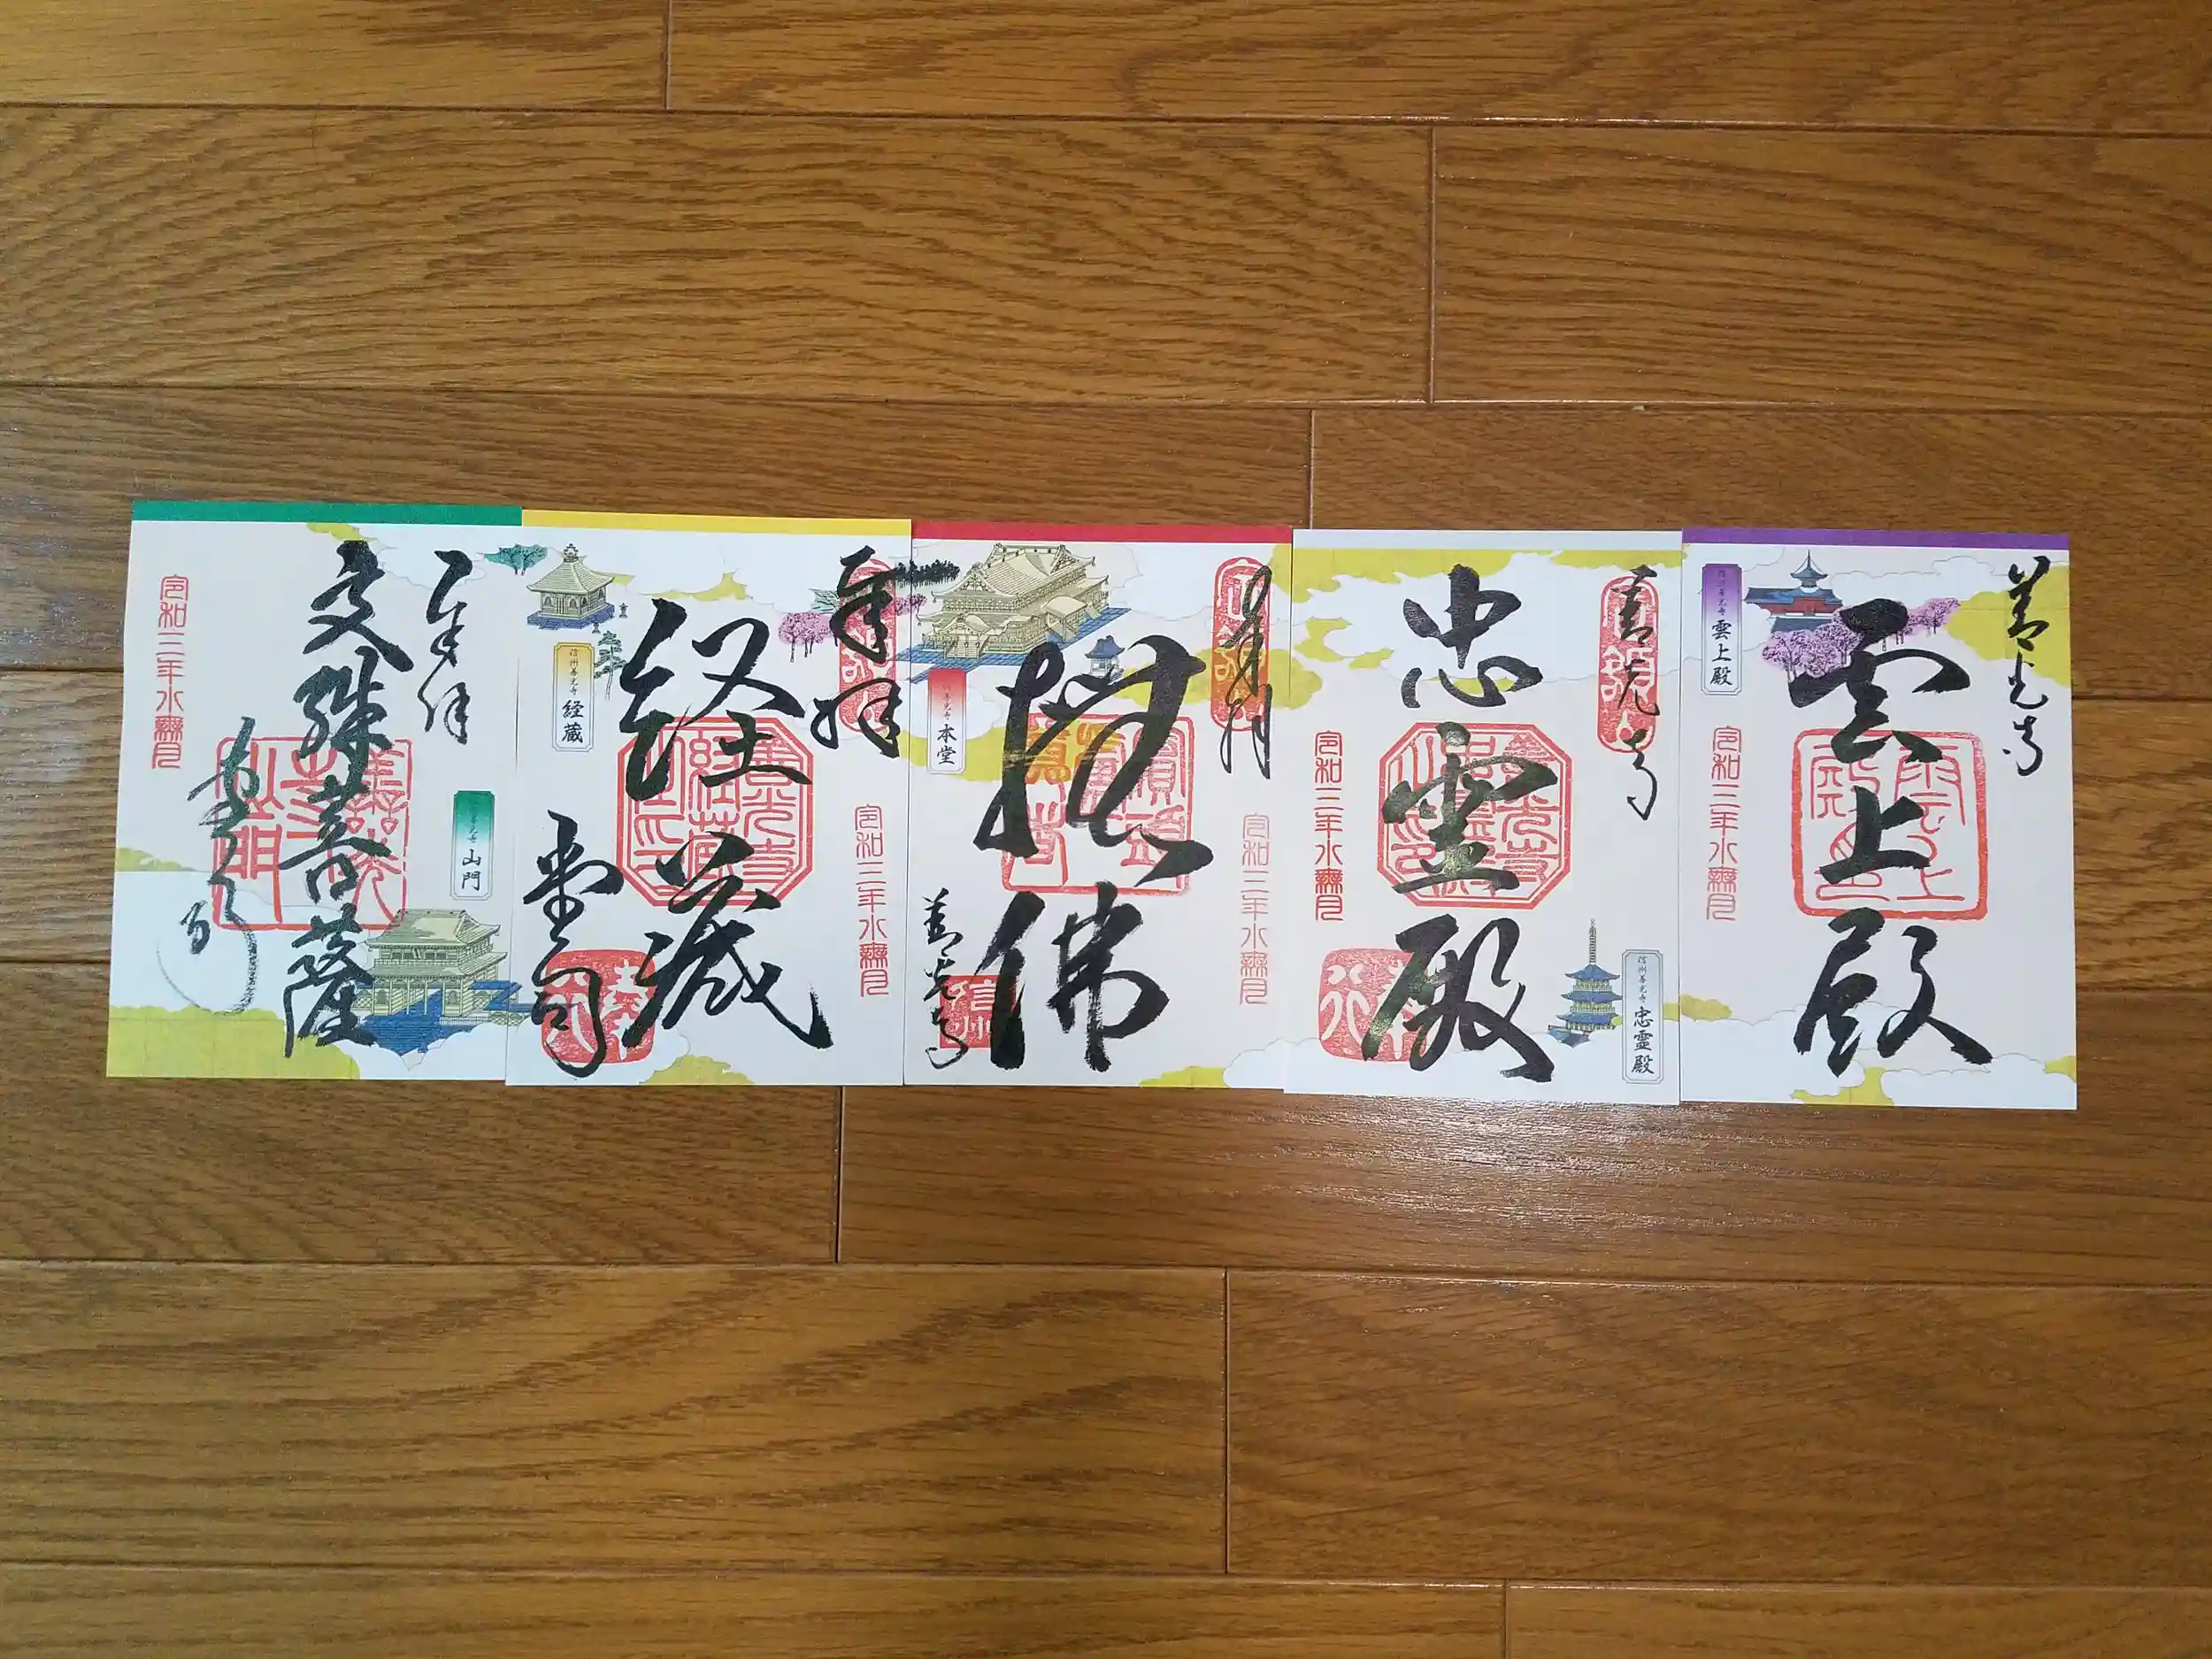 奉拝
文殊菩薩
令和三年水無月
善光寺 山門
奉拝
経蔵
堂司
信州善光寺 経蔵
令和三年水無月
奉拝
佛
善光寺
信州
善光寺 本堂
令和三年水無月
善光寺
忠霊殿
令和三年水無月
信州善光寺 忠霊殿
善光寺
雲上殿
信州善光寺 雲上殿
令和三年水無月